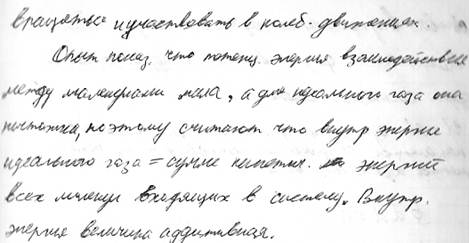 вращаться и участвовать в колеб. движениях.
Опыт показ. что потенц. энергия взаимодействия
между молекулами мала, а для идеального газа она
ничтожна, поэтому считают что внутр энергия
идеального газа = сумме кинетич. энергий
всех молекул входящих в систему. Внутр.
энергия величина аддитивная.